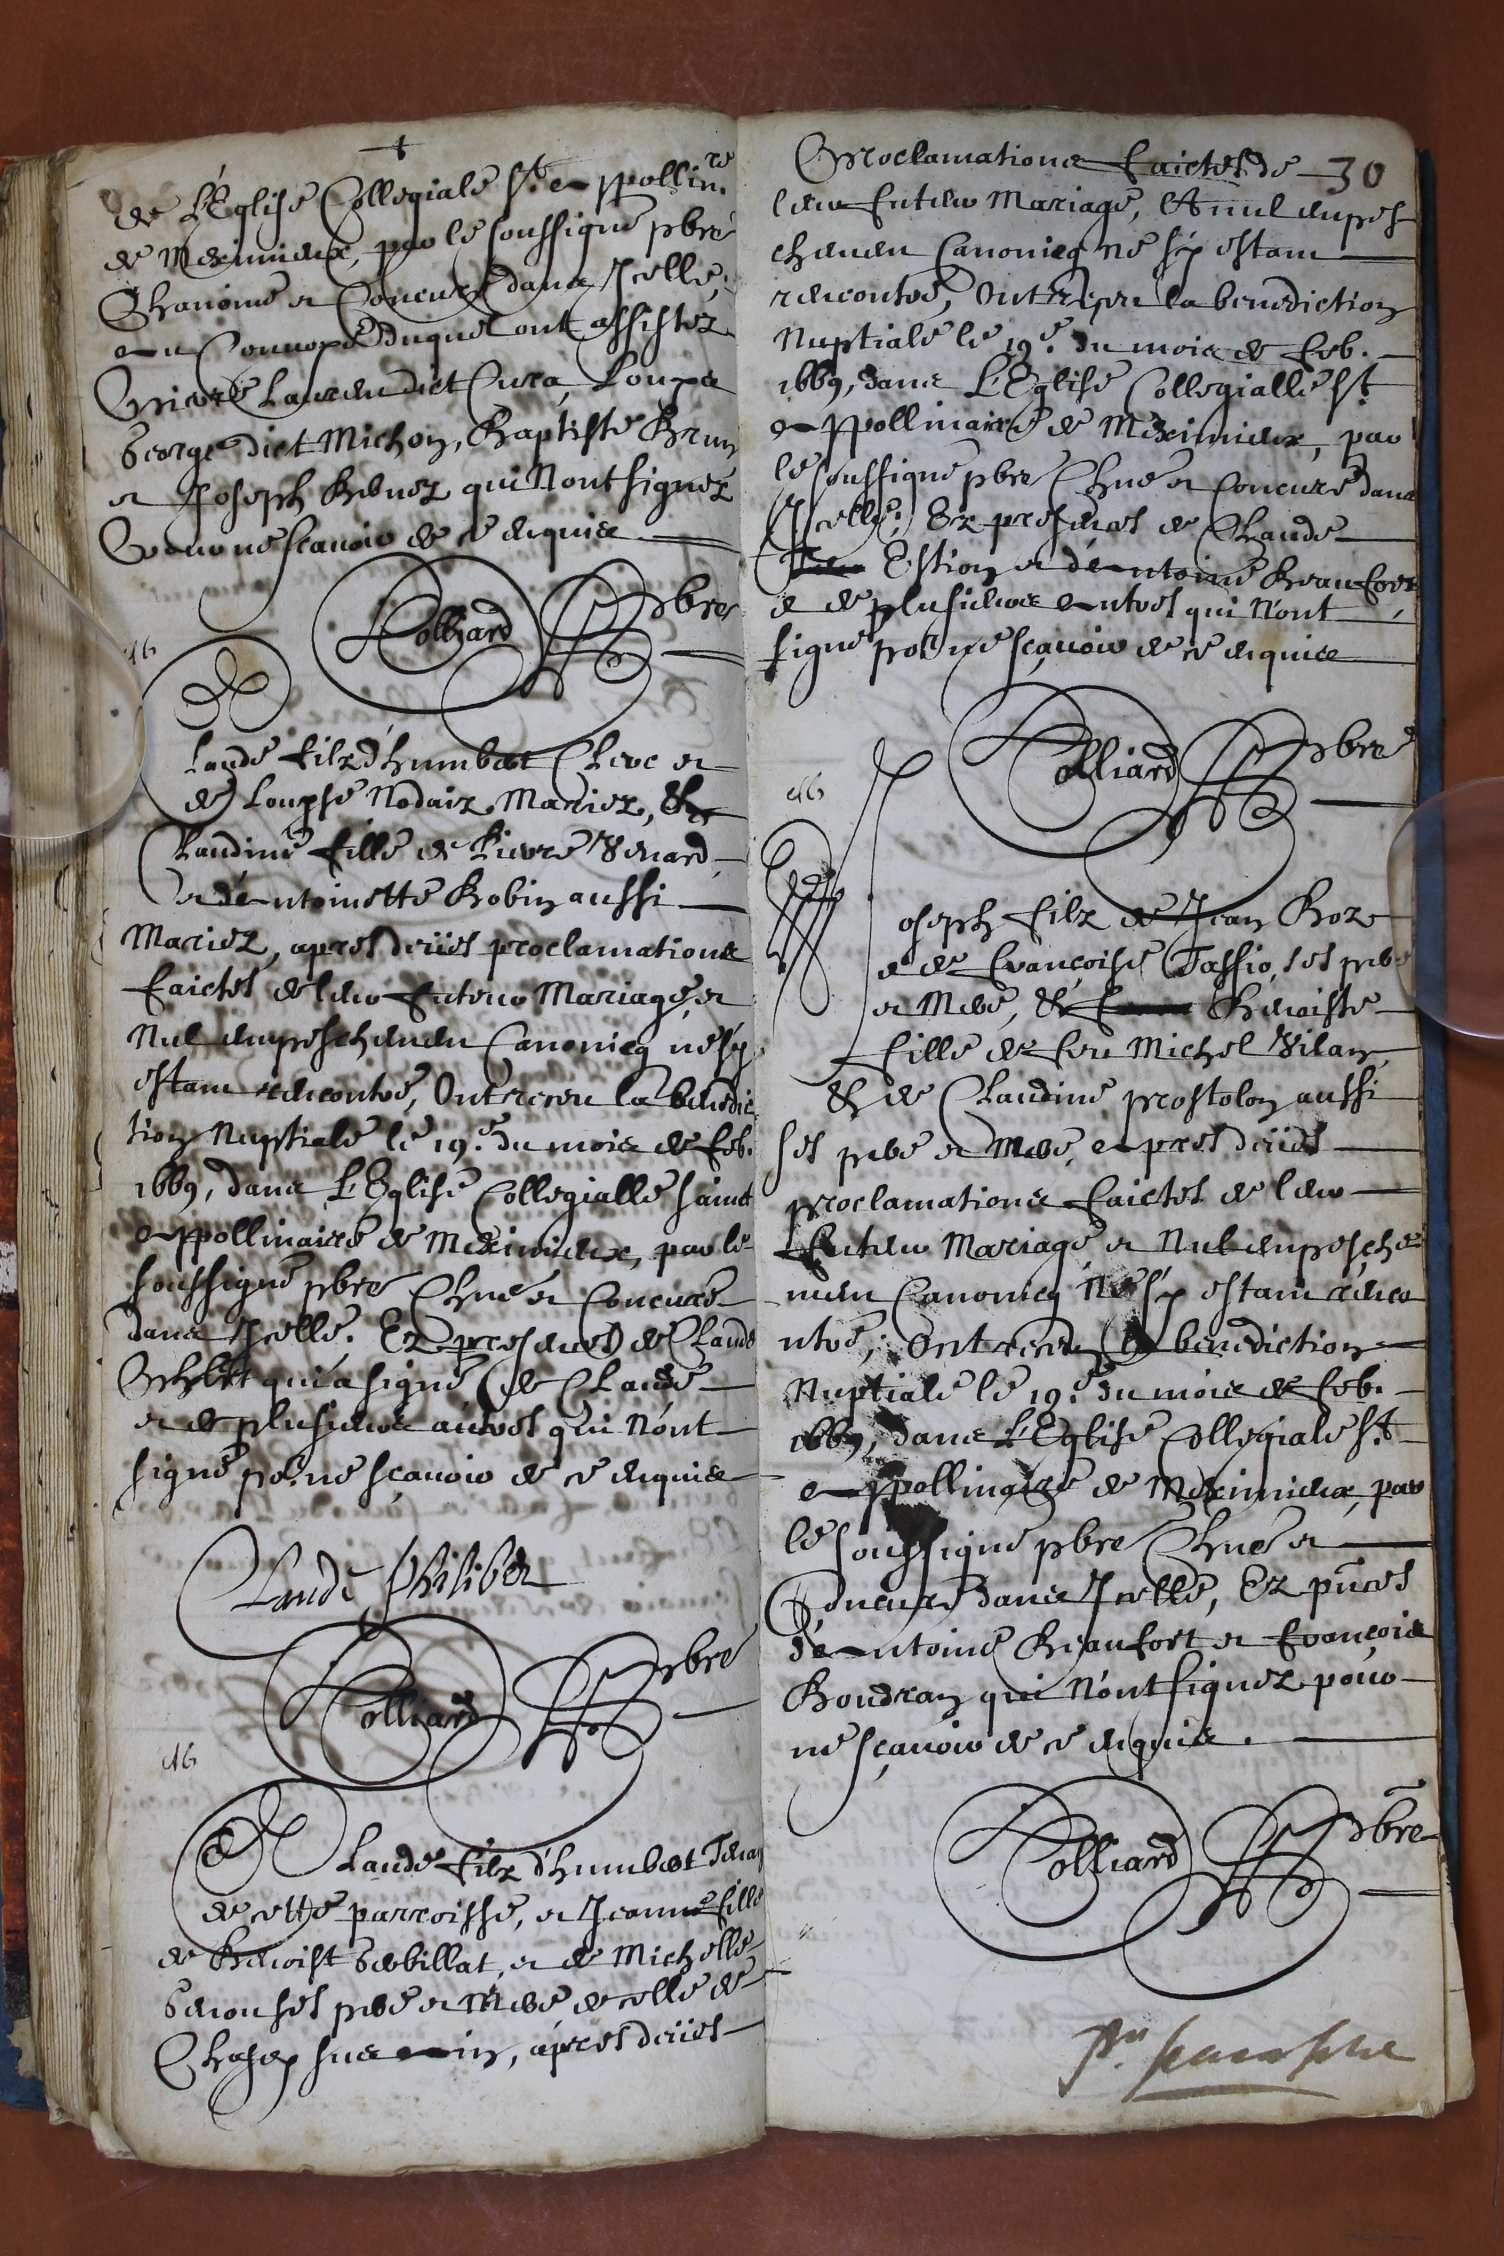 de L'Eglise Collegiale St. Appollin.re
de Meximieux, par le soussigné pbre
Chanoine et Concuré dans Icelle,
au Convoy duquel ont assistez
Pierre Lauren dict Cura, Louys
George dict Michon, Baptiste Brun
et Joseph Benez qui N'ont signez
Pour ne scavoir de ce enquis
Colliard pbre
M6
Claude filz d'humbert Clerc et
de Louyse Nodaiz Mariez, Et
Claudine fille de Pierre Venard
et d'Antoinette Robin aussi
Mariez, apres deües proclamations
faictes de leur futeur Mariage, et
Nul empeschemen Canonicq ne s'y
estant rencontré, Ont receu la benedic
tion Nuptiale le 19e. du mois de feb.
1669, dans L'Eglise Collegialle sainct
Appollinaire de Meximieux, par le
soussigné pbre Chne et Concuré
dans Icelle. Ez presences de Claude
Philibert qui a signé de Claude
et de plusieurs autres qui N'ont
signé po.r ne sçavoir de ce enquis
Claude philiber
Colliard pbre
M6
Claude filz d'humbert Tenay
de cette parroisse, et Jeanne fille
de Benoist Gerbillat, et de Michelle
Genon ses pere et Mere de celle de
Chasey sur Ain, apres deües
30
Proclamations faictes de
leur futeur Mariage, Et nul empes
chemen Canonicq ne s'y estant
rencontré, Ont reçeu la benediction
Nuptiale le 19e. du mois de feb.
1669, dans L'Eglise Collegialle St.
Appollinaire de Meximieux, par
le soussigné pbre Chne et Concuré dans
Icelle; Ez presences de Claude
Estion et d'Antoine Beaufort
et de plusieurs Autres qui N'ont
signé po.r ne sçavoir de ce enquis
Colliard pbre
M6
Joseph filz de Jean Boz
et de françoise Tassio, ses pere
et Mere, Et Benoiste
fille de feu Michel Vilan
Et de Claudine prostolon aussi
ses pere et Mere, Apres deües
proclamations faictes de leur
futeur Mariage et Nul empesche
men Canonicq Ne s'y estant renco
ntré, Ont receu la benediction
Nuptiale le 19e. du mois de feb.
1669, dans L'Eglise Collegiale St.
Appollinaire de Meximieux, par
le soussigné pbre Chne et
Concuré dans Icelle, Ez pnces
d'Antoine Beaufort et françois
Boudran qui N'ont signez pour
ne sçavoir de ce enquis.
Colliard pbre